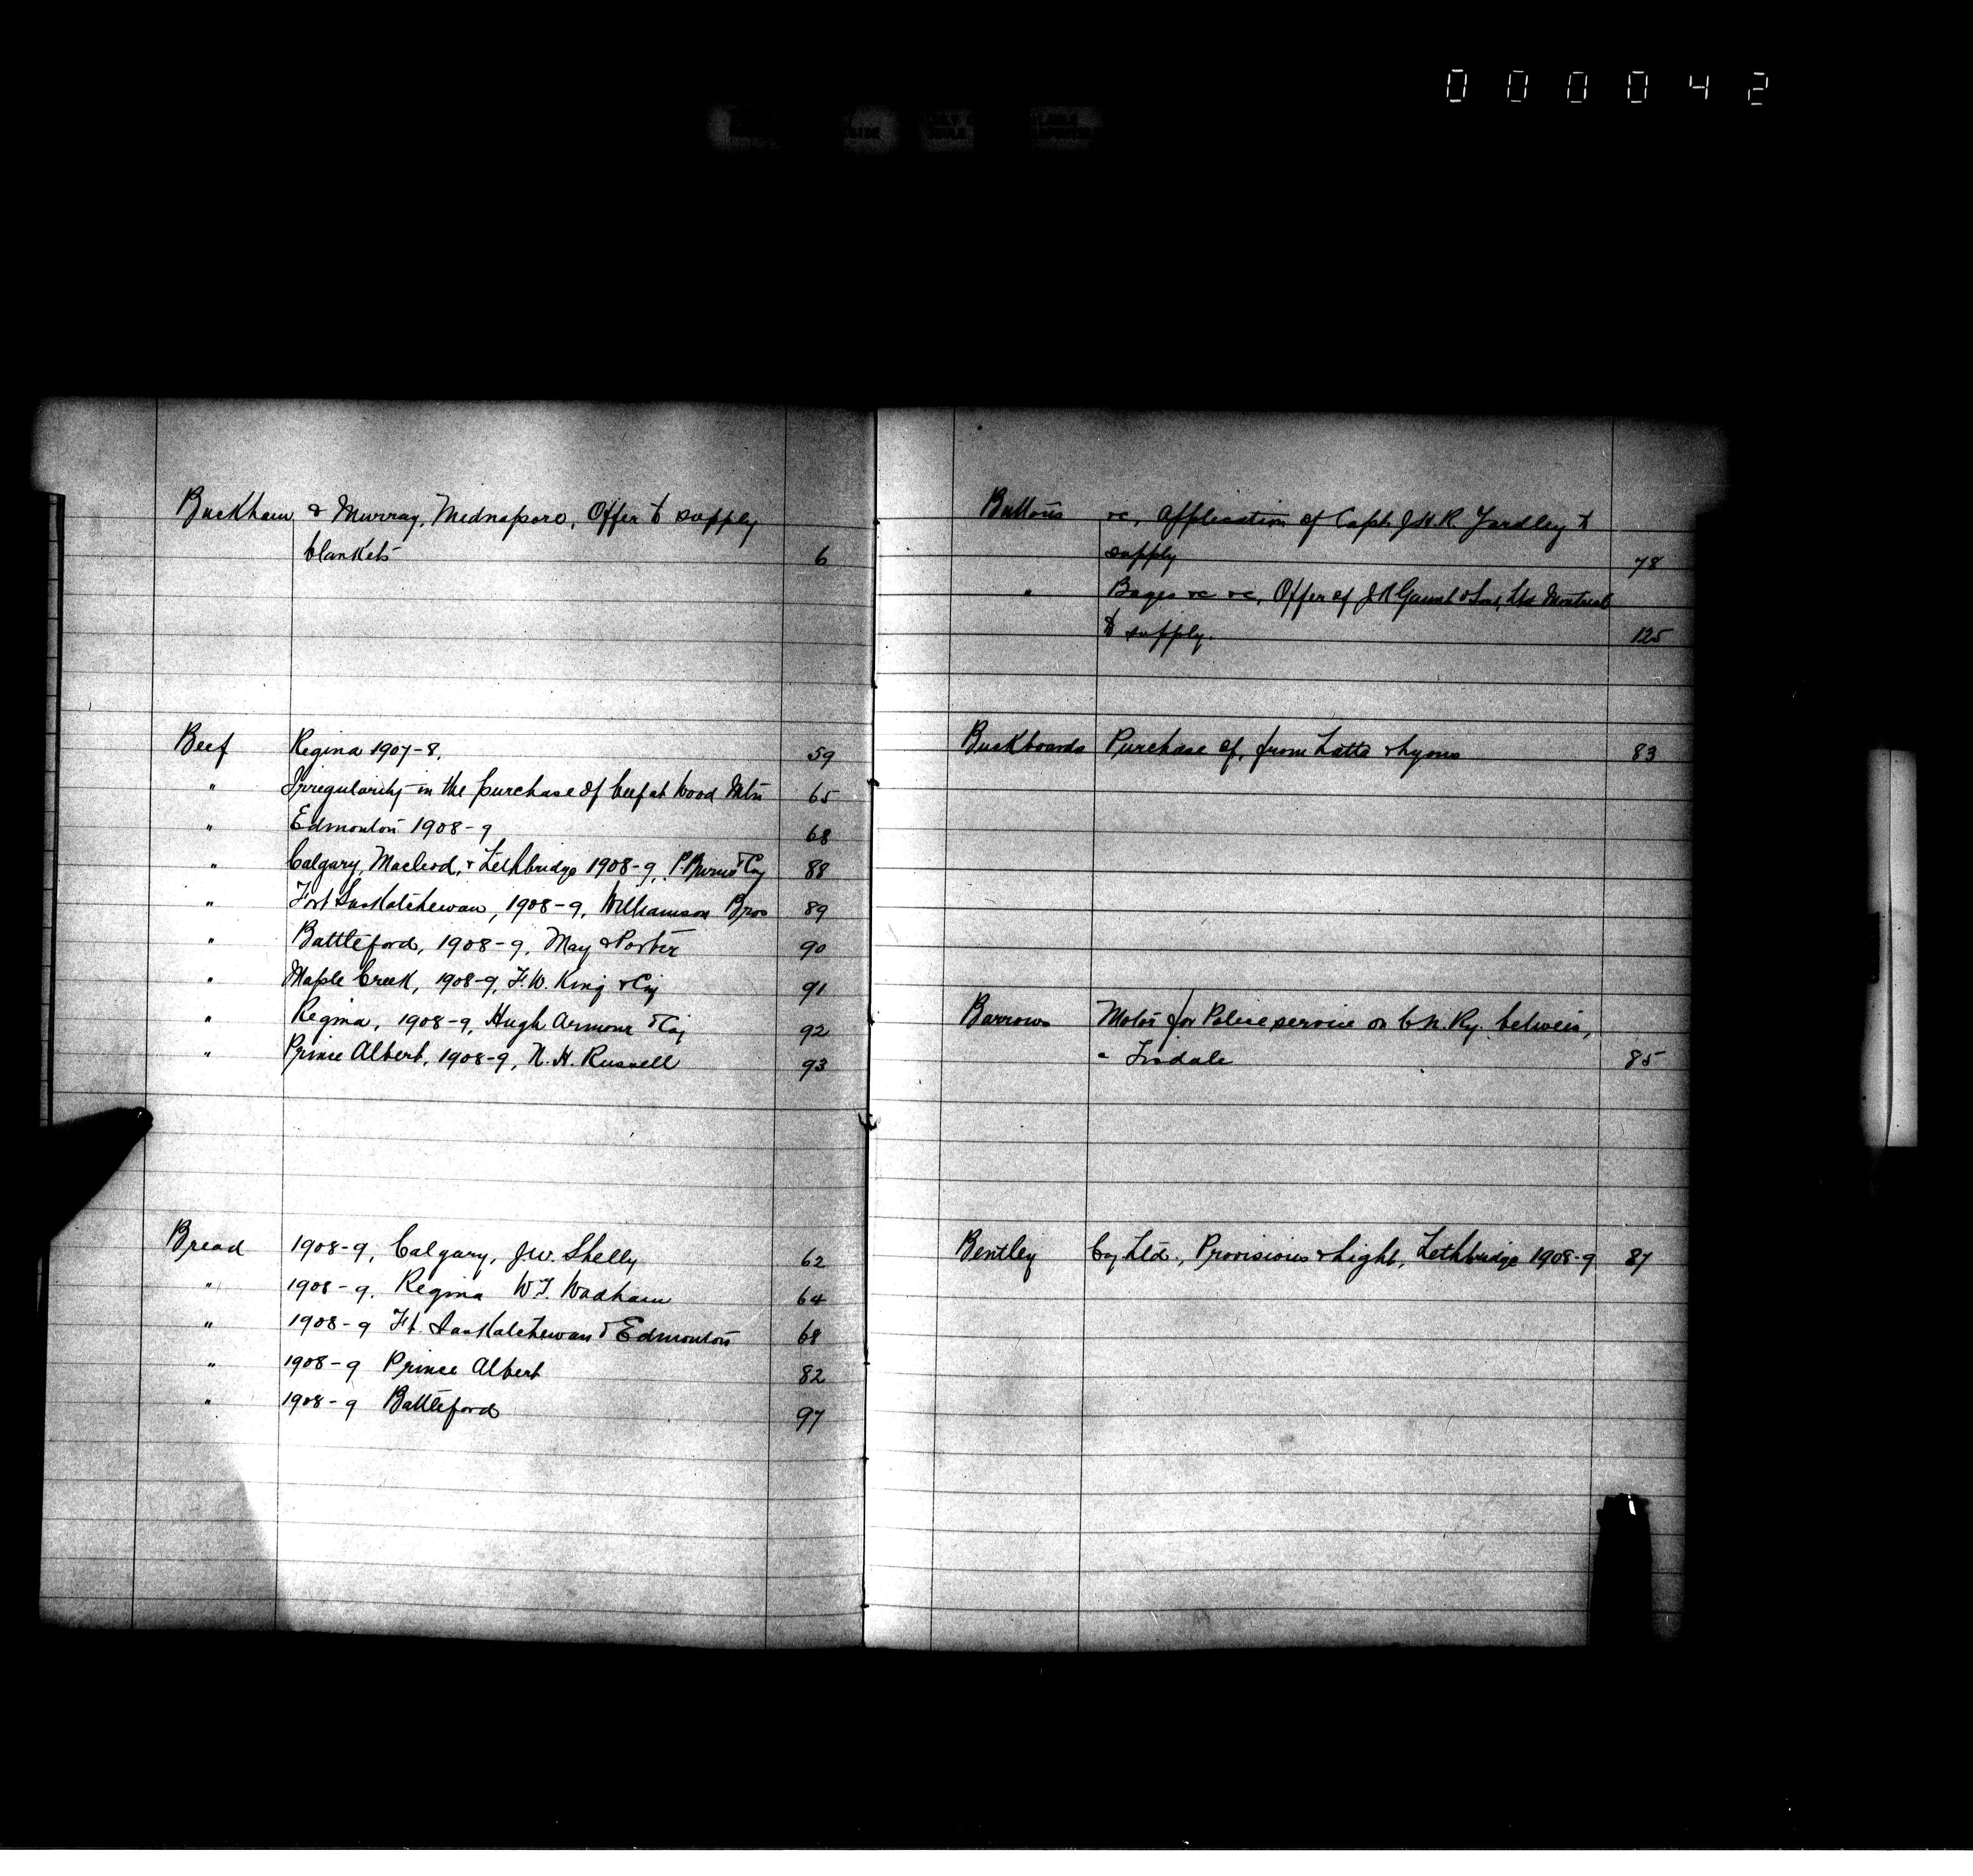 000042
Buckham & Murray, Mednapore, Offer to supply
blankets 6
Beef Regina 1907-8. 59
" Irregularity in the purchase of beef at Wood Mtn 65
" Edmonton 1908-9 68
" Calgary, Macleod, & Lethbridge 1908-9, P. Burns & Coy 88
" Fort Saskatchewan, 1908-9, Williamson Bros 89
" Battleford, 1908-9, May & Porter 90
" Maple Creek, 1908-9, F.W. King & Coy 91
" Regina, 1908-9, Hugh Armour & Coy 92
" Prince Albert, 1908-9, N. H. Russell 93
Bread 1908-9, Calgary, J.W. Shelly 62
" 1908-9. Regina W.T. Wadham 64
" 1908-9 Ft. Saskatchewan & Edmonton 68
" 1908-9 Prince Albert 82
" 1908-9 Battleford 97
Buttons &c, application of Capt. J.H.R. Yardley to
supply 78
" Bages &c &c, Offer of J R Gaunt & Son, Ltd Montreal
to supply. 125
Buckboards Purchase of, from Latta & Lyons 83
Barrows Motor for Police service on C.N. Ry. between,
& Tisdale 85
Bentley Coy Ltd., Provisions & Light, Lethbridge 1908-9 87